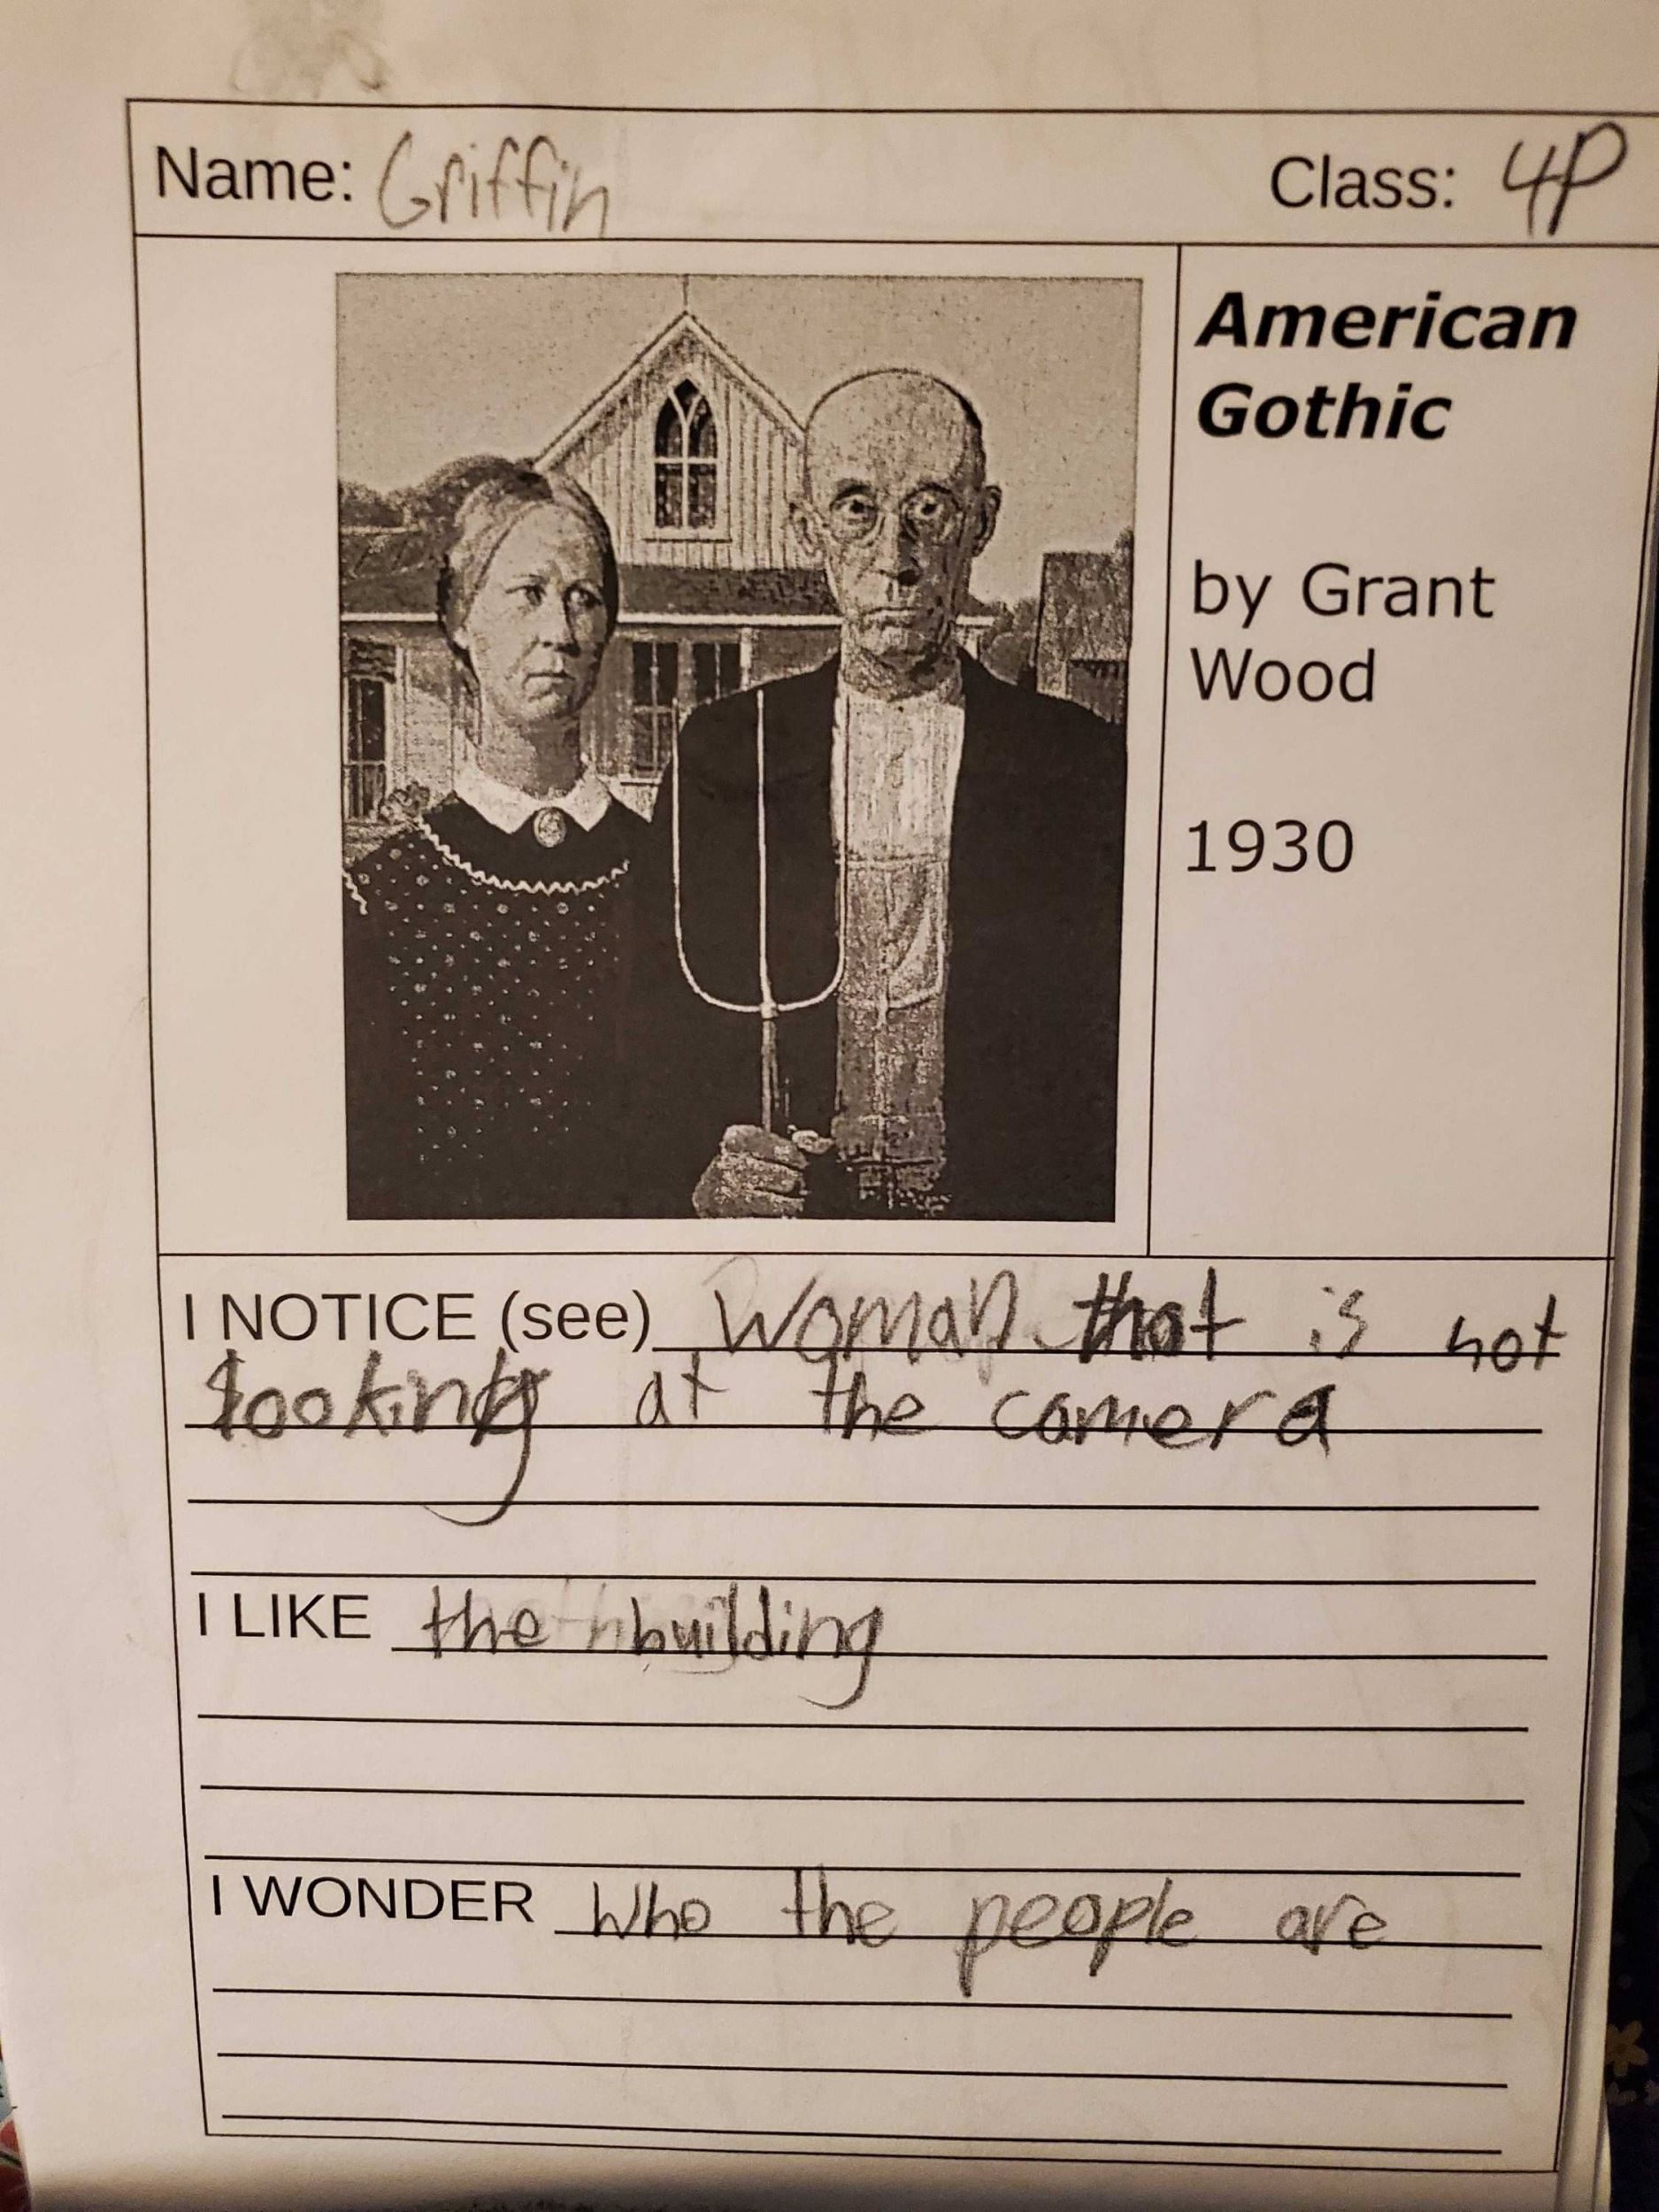 Name: Griffin Class: 4P
American
Gothic
by Grant
Wood
1930
I NOTICE (see) Woman that is not
looking at the camera
I LIKE the building
I WONDER Who the people are